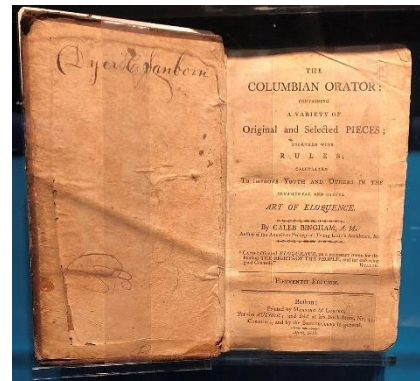 Dyer H Sanborn
THE
COLUMBIAN ORATOR:
CONTAINING
A VARIETY OF
Original and Selected PIECES;
TOGETHER WITH
RULES;
CALCULATED
TO IMPROVE YOUTH AND OTHERS IN THE
ORNAMENTAL AND USEFUL
ART OF ELOQUENCE.
By CALEB BINGHAM, A. M.
Author of the American Preceptor, Young Lady's Accidence, &c.
ELOQUENCE, as a
THE RIGHTS OF THE PEOPLE, and for
ROLLIN.
EDITION.
Boston:
Printed by MANNING & LORING,
For the AUTHOR; and sold at his Book-store, No. 44,
CORNHILL, and by the BOOKSELLERS in general.
April,